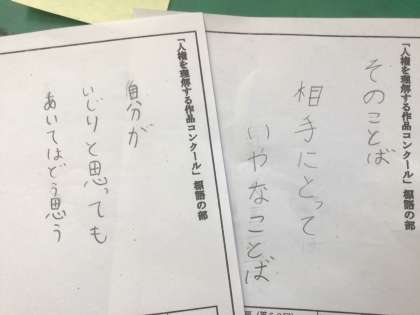 「人権を理解する作品コンクール」標語の部
そのことば
相手にとって
いやなことば
「人権を理解する作品コンクール」標語の部
自分が
いじりと思っても
あいてはどう思う